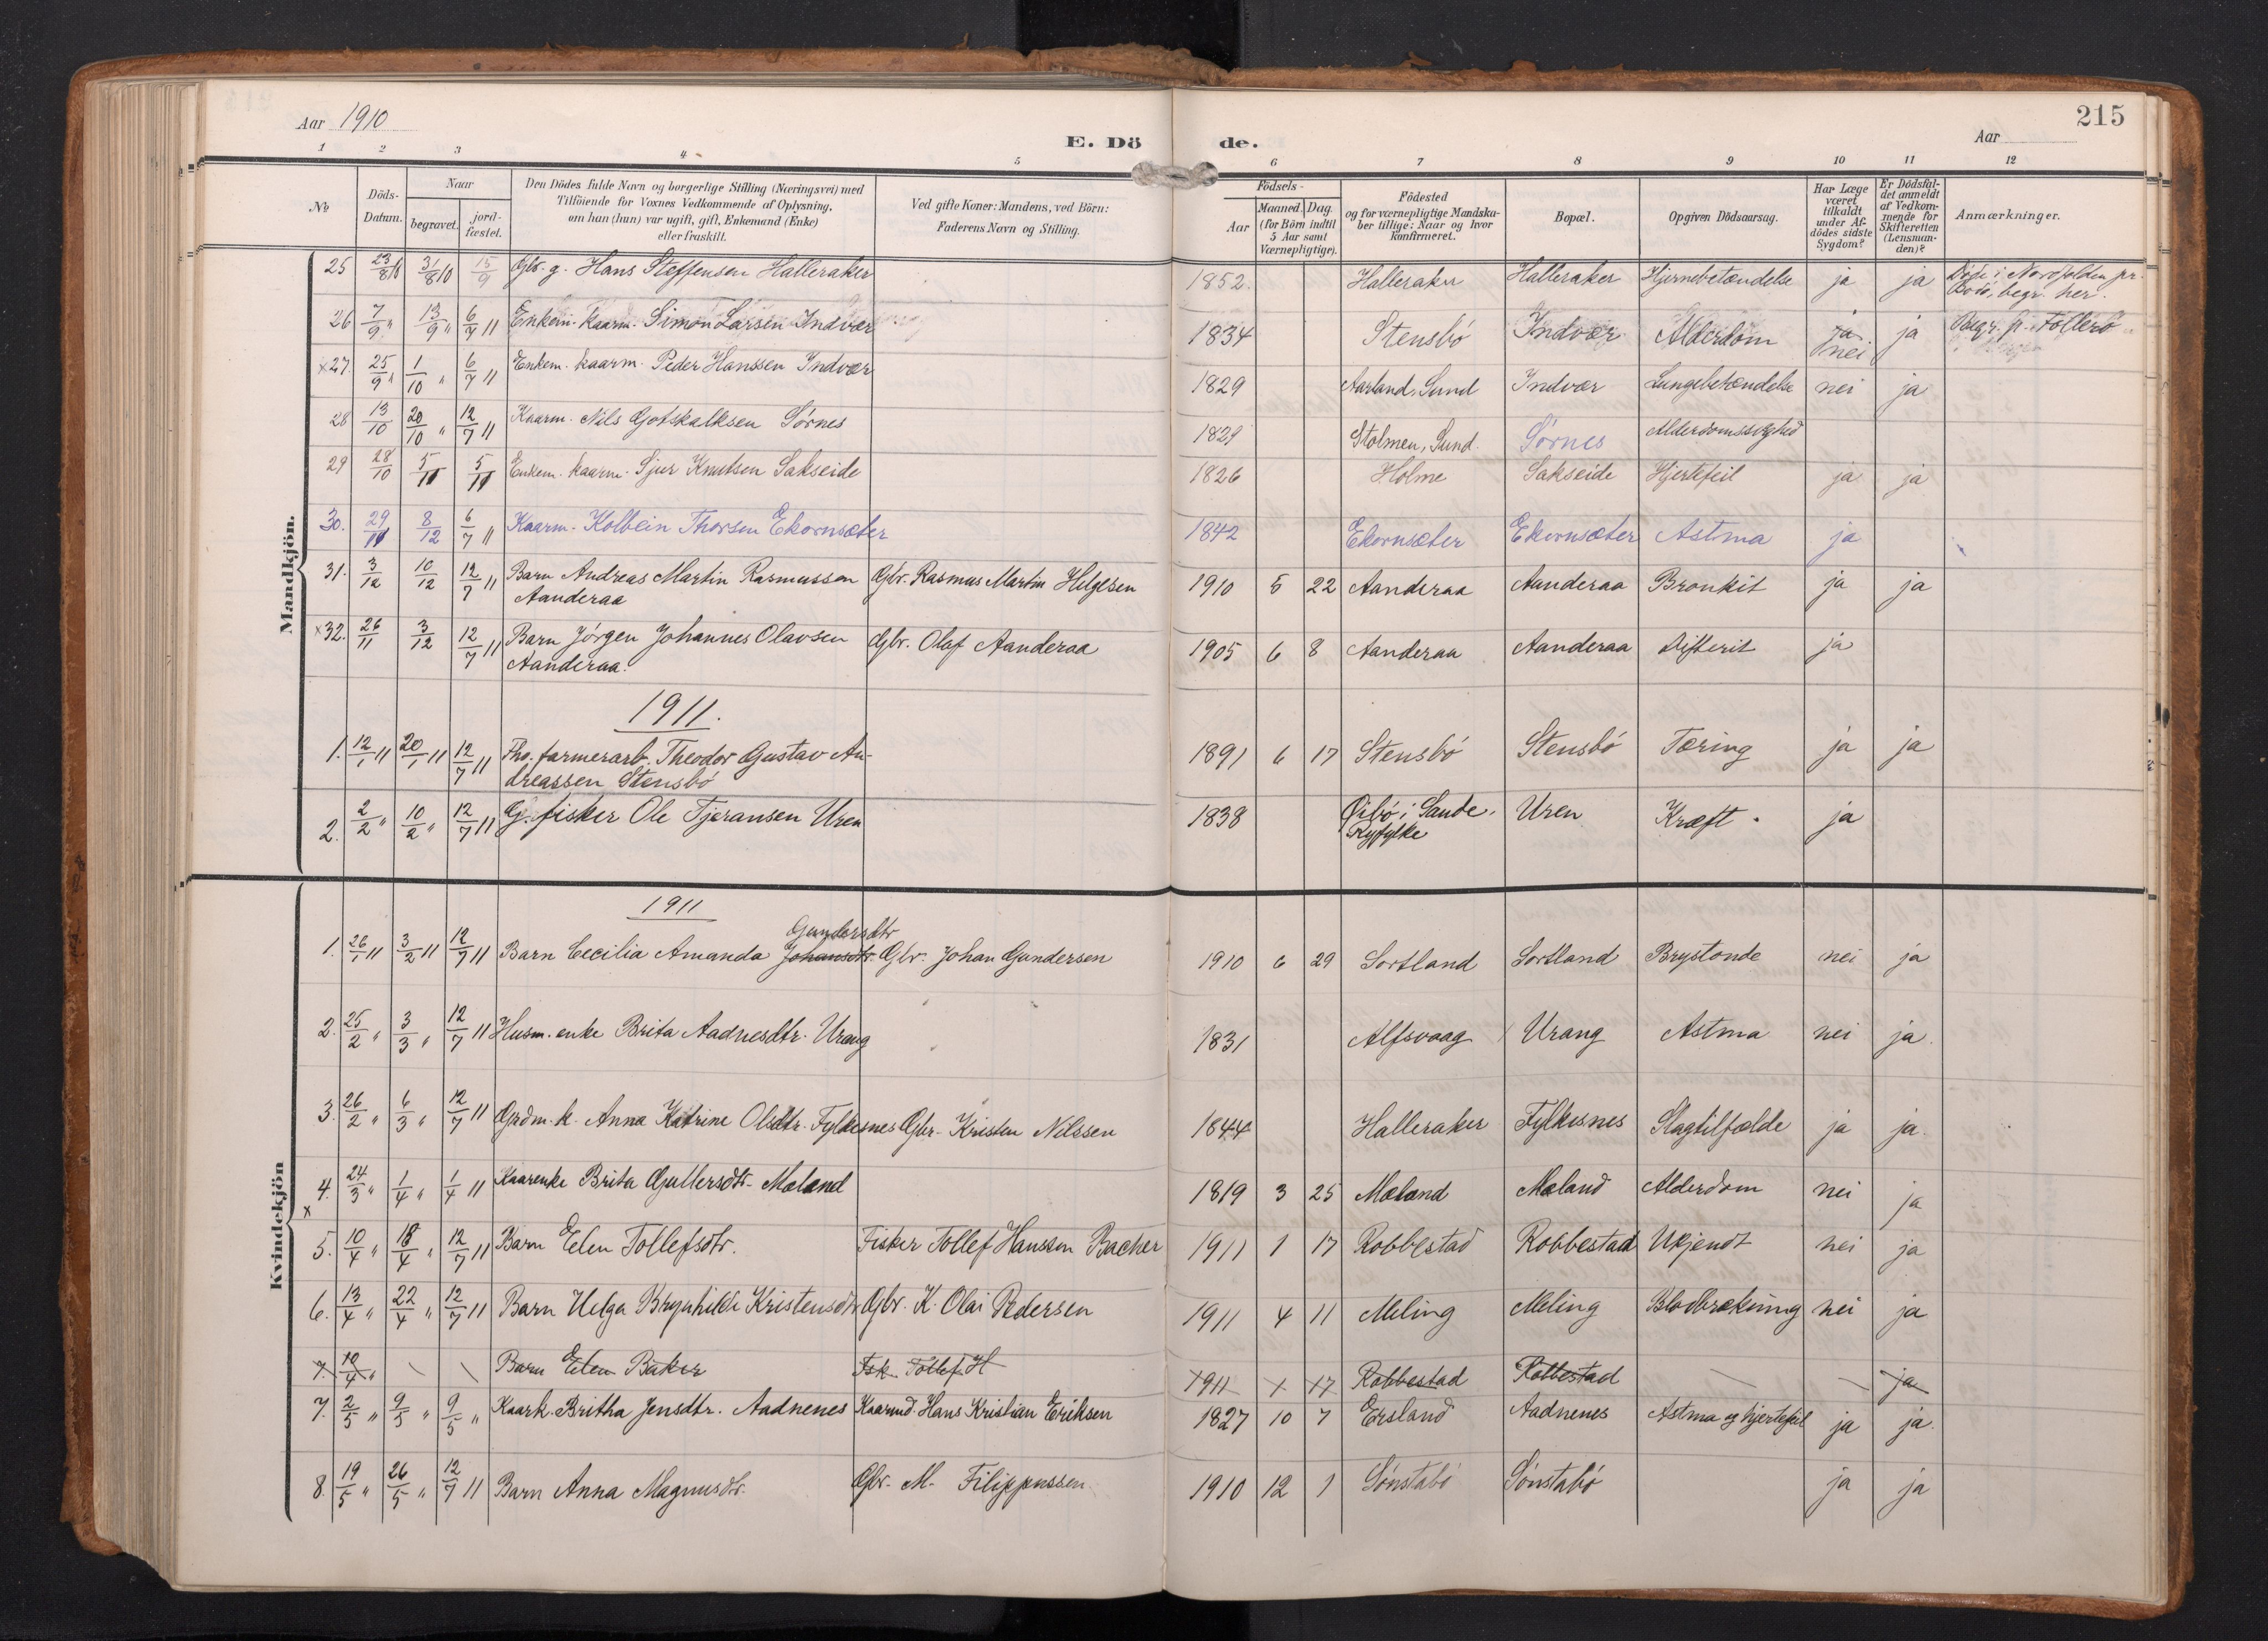 215
Aar 1910
E. Dö de.
Aar
1 2 3 4 5 6 7 8 9 10 11 12
№
Döds-Datum.
Naar
begravet.
jord-fæstet.
Den Dödes fulde Navn og borgerlige Stilling (Næringsvei) med
Tilföiende for Voxnes Vedkommende af Oplysning,
om han (hun) var ugift, gift, Enkemand (Enke)
eller fraskilt.
Ved gifte Koner: Mandens, ved Börn:
Faderens Navn og Stilling.
Födsels-
Aar
Maaned. Dag.
(for Börn indtil
5 Aar samt
Værnepligtige).
Födested
og for værnepligtige Mandska-
ber tillige: Naar og hvor
konfirmeret.
Bopæl.
Opgiven Dödsaarsag.
Har Læge
været
tilkaldt
under Af-
dödes sidste
Sygdom?
Er Dödsfal-
det anmeldt
af Vedkom-
mende for
Skifteretten
(Lensman-
den)?
Anmærkninger.
Mandkjön.
25 23/8 10 31/8 10 15/9 Gbr. g. Hans Steffensen Halleraker 1852 Halleraker Halleraker Hjernebetændelse ja ja Döde i Nordfolden pr.
Bodö, begr. her.
26 7/9 " 13/9 " 6/7 11 Enkem. kaarm. Simon Larsen Indvær 1834 Stensbö Indvær Alderdom ja nei ja Begr. p. Föllerö
×27. 25/9 " 1/10 " 6/7 11 Enkem. kaarm. Peder Hanssen Indvær 1829 Aarland, Sund Indvær Lungebetændelse nei ja
28 13/10 20/10 " 12/7 11 Kaarm. Nils Gotskalksen Sörnes 1829 Stolmen, Sund. Sörnes Alderdomssvaghed
29 28/10 5/11 5/11 Enkem. kaarm. Sjur Knutsen Sakseide 1826 Holme Sakseide Hjertefeil ja ja
30. 29/11 8/12 6/7 11 Kaarm. Kolbein Thorsen Ekornsæter 1842 Ekornsæter Ekornsæter Astma ja
31. 3/12 10/12 12/7 11 Barn Andreas Martin Rasmussen Gbr. Rasmus Martin Helgesen 1910 5 22 Aanderaa Aanderaa Bronkit ja ja
Aanderaa
×32. 26/11 3/12 12/7 11 Barn Jörgen Johannes Olavsen Gbr. Olaf Aanderaa 1905 6 8 Aanderaa Aanderaa Difterit ja
Aanderaa.
1911.
1. 12/1 11 20/1 11 12/7 11 Fho. farmerarb. Theodor Gustav An- 1891 6 17 Stensbö Stensbö Tæring ja ja
dreassen Stensbö
2. 2/2 " 10/2 " 12/7 11 G. fisker Ole Tjeransen Uren 1838 Öibö i Sande, Uren Kræft. ja
Ryfylke
Kvindekjön
1911
Gundersdtr
1. 26/1 11 3/2 11 12/7 11 Barn Cecilia Amanda Johansdtr. Gbr. Johan Gundersen 1910 6 29 Sortland Sortland Brystonde nei ja
2. 25/2 " 3/3 " 12/7 11 Husm. enke Brita Aadnesdtr. Urang 1831 Alfsvaag Urang Astma nei ja.
3. 26/2 " 6/3 " 12/7 11 Grdm. k. Anna Katrine Olsdtr. Fylkesnes Gbr. Kristen Nilssen 1844 Halleraker Fylkesnes Slagtilfælde ja ja.
×4. 24/3 " 1/4 " 1/4 11 Kaarenke Brita Guttersdtr. Mæland 1819 3 25 Mæland Mæland Alderdom nei ja
5. 10/4 " 18/4 " 12/7 11 Barn Elen Tollefsdtr. Fisker Tollef Hanssen Bacher 1911 1 17 Robbestad Robbestad Ukjendt nei ja
6. 13/4 " 22/4 " 12/7 11 Barn Helga Brynhilde Kristensdtr Gbr. K. Olai Pedersen 1911 4 11 Meling Meling Blodbrækning nei ja
7. 10/4 " Barn Elen Baker Fsk. Tollef H 1911 1 17 Robbestad Robbestad — — ja
7. 2/5 " 9/5 " 9/5 " Kaark. Britha Jensdtr. Aadnenes Kaarmd. Hans Kristian Eriksen 1827 10 7 Ersland Aadnenes Astma og hjertefeil ja ja.
8. 19/5 " 26/5 " 12/7 11 Barn Anna Magnusdtr. Gbr. M. Filippussen 1910 12 1 Sönstabö Sönstabö ja ja